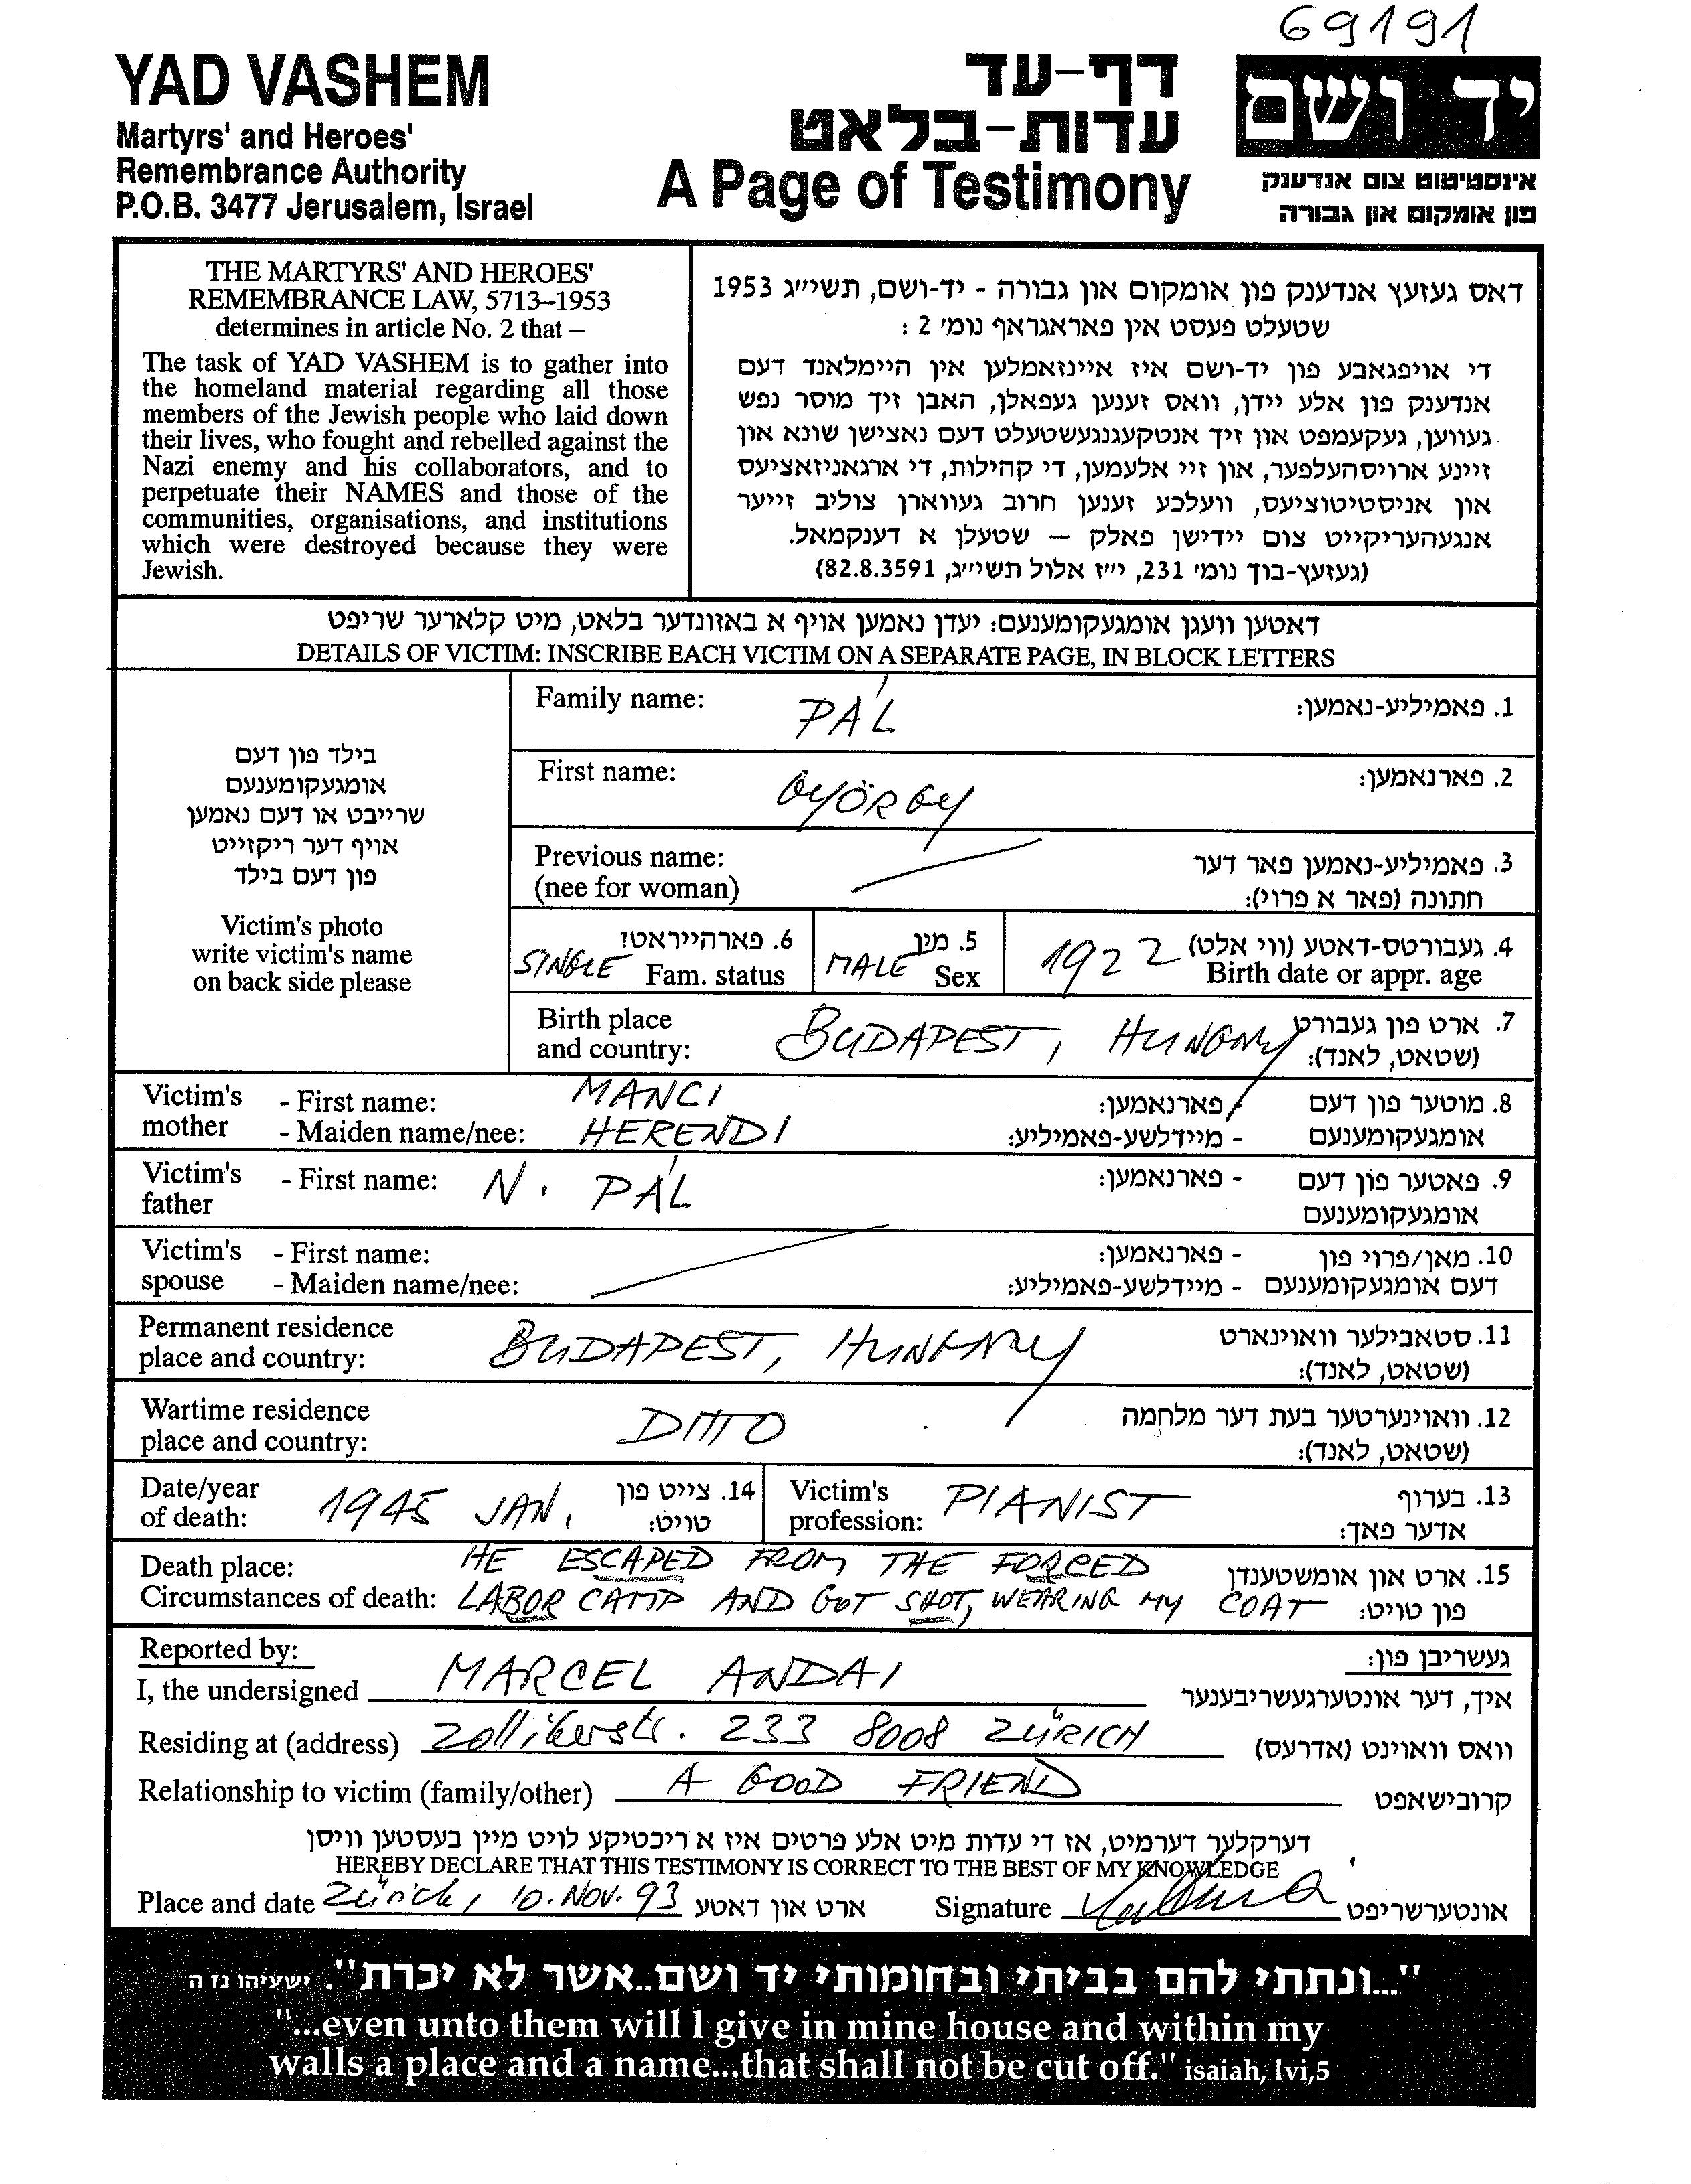 69191
YAD VASHEM
Martyrs' and Heroes'
Remembrance Authority
P.O.B. 3477 Jerusalem, Israel
דף-עד
עדות-בלאט
A Page of Testimony
יד ושם
אינסטיטוט צום אנדענק
פון אומקום און גבורה
THE MARTYRS' AND HEROES'
REMEMBRANCE LAW, 5713–1953
determines in article No. 2 that –
The task of YAD VASHEM is to gather into
the homeland material regarding all those
members of the Jewish people who laid down
their lives, who fought and rebelled against the
Nazi enemy and his collaborators, and to
perpetuate their NAMES and those of the
communities, organisations, and institutions
which were destroyed because they were
Jewish.
דאס געזעץ אנדענק פון אומקום און גבורה - יד-ושם, תשי״ג 1953
שטעלט פעסט אין פאראגראף נומ׳ 2 :
די אויפגאבע פון יד-ושם איז איינזאמלען אין היימלאנד דעם
אנדענק פון אלע יידן, וואס זענען געפאלן, האבן זיך מוסר נפש
געווען, געקעמפט און זיך אנטקעגנגעשטעלט דעם נאצישן שונא און
זיינע ארויסהעלפער, און זיי אלעמען, די קהילות, די ארגאניזאציעס
און אניסטיטוציעס, וועלכע זענען חרוב געווארן צוליב זייער
אנגעהעריקייט צום יידישן פאלק – שטעלן א דענקמאל.
(געזעץ-בוך נומ׳ 231, י״ז אלול תשי״ג, 82.8.3591)
דאטען וועגן אומגעקומענעם: יעדן נאמען אויף א באזונדער בלאט, מיט קלארער שריפט
DETAILS OF VICTIM: INSCRIBE EACH VICTIM ON A SEPARATE PAGE, IN BLOCK LETTERS
בילד פון דעם
אומגעקומענעם
שרייבט או דעם נאמען
אויף דער ריקזייט
פון דעם בילד
Victim's photo
write victim's name
on back side please
Family name: PÁL 1. פאמיליע-נאמען:
First name: GYÖRGY 2. פארנאמען:
Previous name: 3. פאמיליע-נאמען פאר דער
(nee for woman) חתונה (פאר א פרוי):
6. פארהייראט? 5. מין 4. געבורטס-דאטע (ווי אלט)
SINGLE Fam. status MALE Sex 1922 Birth date or appr. age
Birth place BUDAPEST, HUNGARY 7. ארט פון געבורט
and country: (שטאט, לאנד):
Victim's - First name: MANCI - פארנאמען: 8. מוטער פון דעם
mother - Maiden name/nee: HERENDI - מיידלשע-פאמיליע: אומגעקומענעם
Victim's - First name: N. PÁL - פארנאמען: 9. פאטער פון דעם
father אומגעקומענעם
Victim's - First name: - פארנאמען: 10. מאן/פרוי פון
spouse - Maiden name/nee: - מיידלשע-פאמיליע: דעם אומגעקומענעם
Permanent residence BUDAPEST, HUNGARY 11. סטאבילער וואוינארט
place and country: (שטאט, לאנד):
Wartime residence DITTO 12. וואוינערטער בעת דער מלחמה
place and country: (שטאט, לאנד):
Date/year 1945 JAN. 14. צייט פון Victim's PIANIST 13. בערוף
of death: טויט: profession: אדער פאך:
Death place: HE ESCAPED FROM THE FORCED 15. ארט און אומשטענדן
Circumstances of death: LABOR CAMP AND GOT SHOT, WEARING MY COAT פון טויט:
Reported by: געשריבן פון:
I, the undersigned MARCEL ANDAI איך, דער אונטערגעשריבענער
Residing at (address) Zollikerstr. 233 8008 ZÜRICH וואס וואוינט (אדרעס)
Relationship to victim (family/other) A GOOD FRIEND קרובישאפט
דערקלער דערמיט, אז די עדות מיט אלע פרטים איז א ריכטיקע לויט מיין בעסטען וויסן
HEREBY DECLARE THAT THIS TESTIMONY IS CORRECT TO THE BEST OF MY KNOWLEDGE
Place and date Zürich, 10. Nov. 93 ארט און דאטע Signature אונטערשריפט
"...ונתתי להם בביתי ובחומותי יד ושם..אשר לא יכרת". ישעיהו נז ה
"...even unto them will I give in mine house and within my
walls a place and a name...that shall not be cut off." isaiah, lvi,5